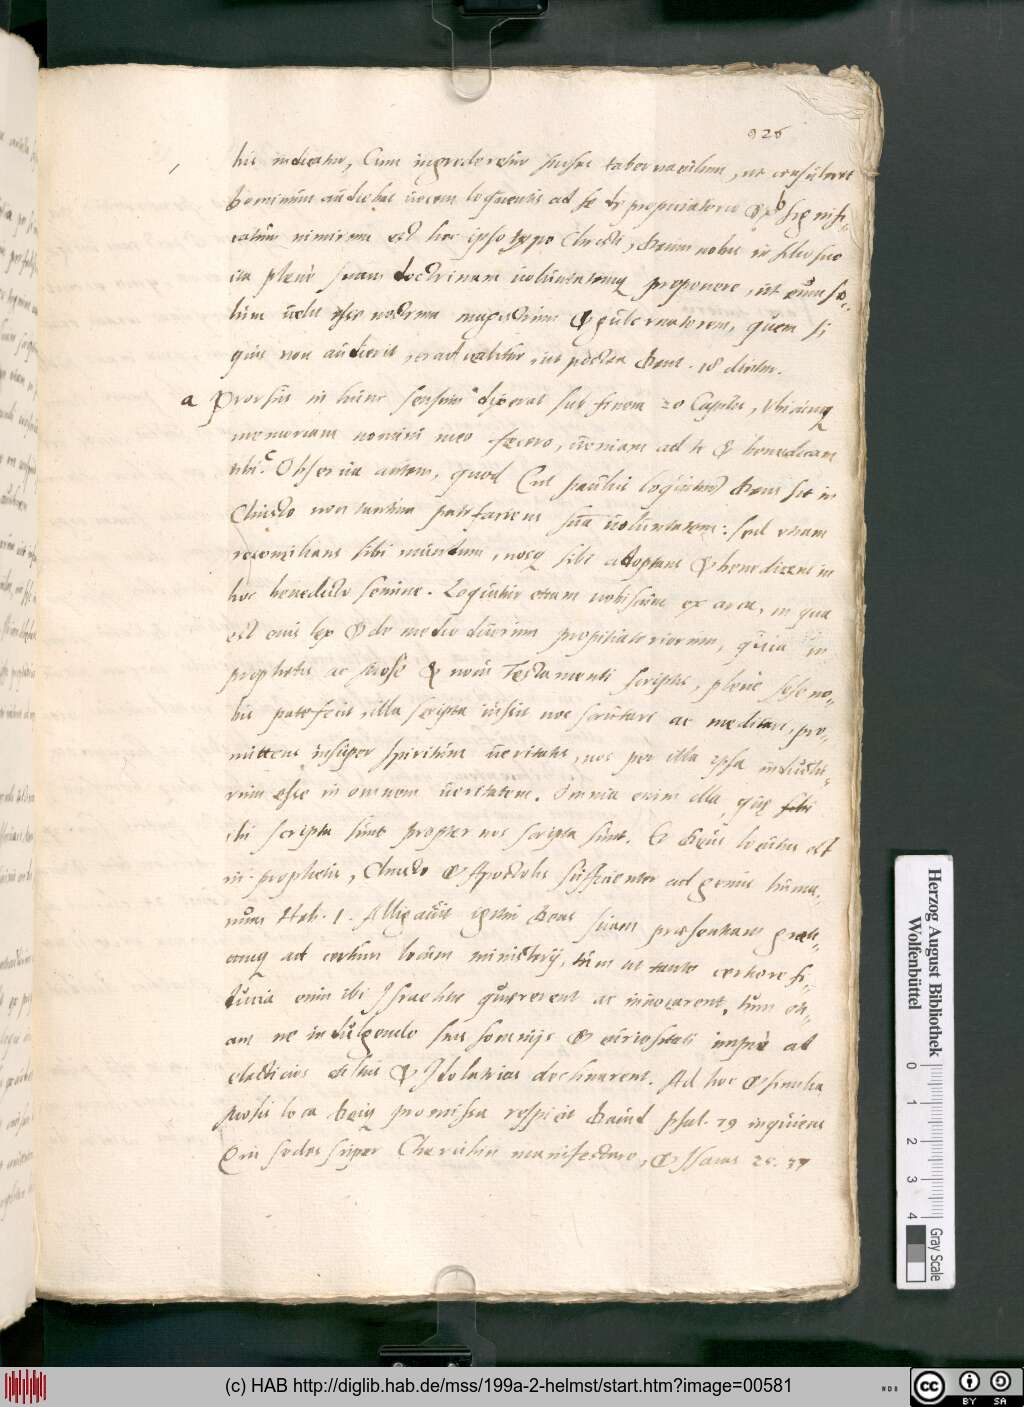 926
his indicatur, Cum ingrederetur Moses tabernaculum, ut consuleret
Dominum audiebat uocem loquentis ad se de propiciatorio &c Signifi-
catum nimirum est hoc ipso typo Christi, Deum nobis in filio suo
ita plene suam doctrinam uoluntatemq proponere, ut eum so-
lum uelit esse nostrum magistrum & gubernatorem, quem si
quis non audierit, eradicabitur, ut postea Deut. 18 dicitur.
a Prorsus in hunc sensum dixerat sub finem 20 Capitis, Ubicunq
memoriam nominis mei fecero, ueniam ad te & benedicam
tibi. Obserua autem, quod (ut paulus loquitur) Deus sit in
Christo non tantum patefaciens suam uoluntatem: sed etiam
reconcilians sibi mundum, nosq sibi adoptans & benedicens in
hoc benedicto semine. Loquitur etiam nobiscum ex arca, in qua
est eius lex & de medio duorum propitiatoriorum, quia in
prophetis ac Mose & noui Testamenti scriptis, plene sese no-
bis patefecit, illa scripta iussit nos scrutari ac meditari, pro-
mittens insuper spiritum ueritatis, nos per illa ipsa inductu-
rum esse in omnem ueritatem. Omnia enim illa, quę
ibi scripta sunt propter nos scripta sunt. Et Deus locutus est
in prophetis, Christo & Apostolis sufficienter ad genus huma-
num Heb. 1. Alligauit igitur Deus suam praesentiam grati-
amq ad certum locum ministerij, tum ut tanto certiore fi-
ducia eum ibi Israelitae quaererent ac inuocarent, tum eti-
am ne indulgendo suis somnijs & curiositati impie ad
electicios cultus & Idolatrias declinarent. Ad hoc & similia
Mosis loca Deiq promissa respicit Dauid psal. 79 inquiens
Qui sedes super Cherubin manifestare, & Isaias 25. 37
(c) HAB http://diglib.hab.de/mss/199a-2-helmst/start.htm?image=00581
Herzog August Bibliothek
Wolfenbüttel
0 1 2 3 4
Gray Scale
cc BY SA